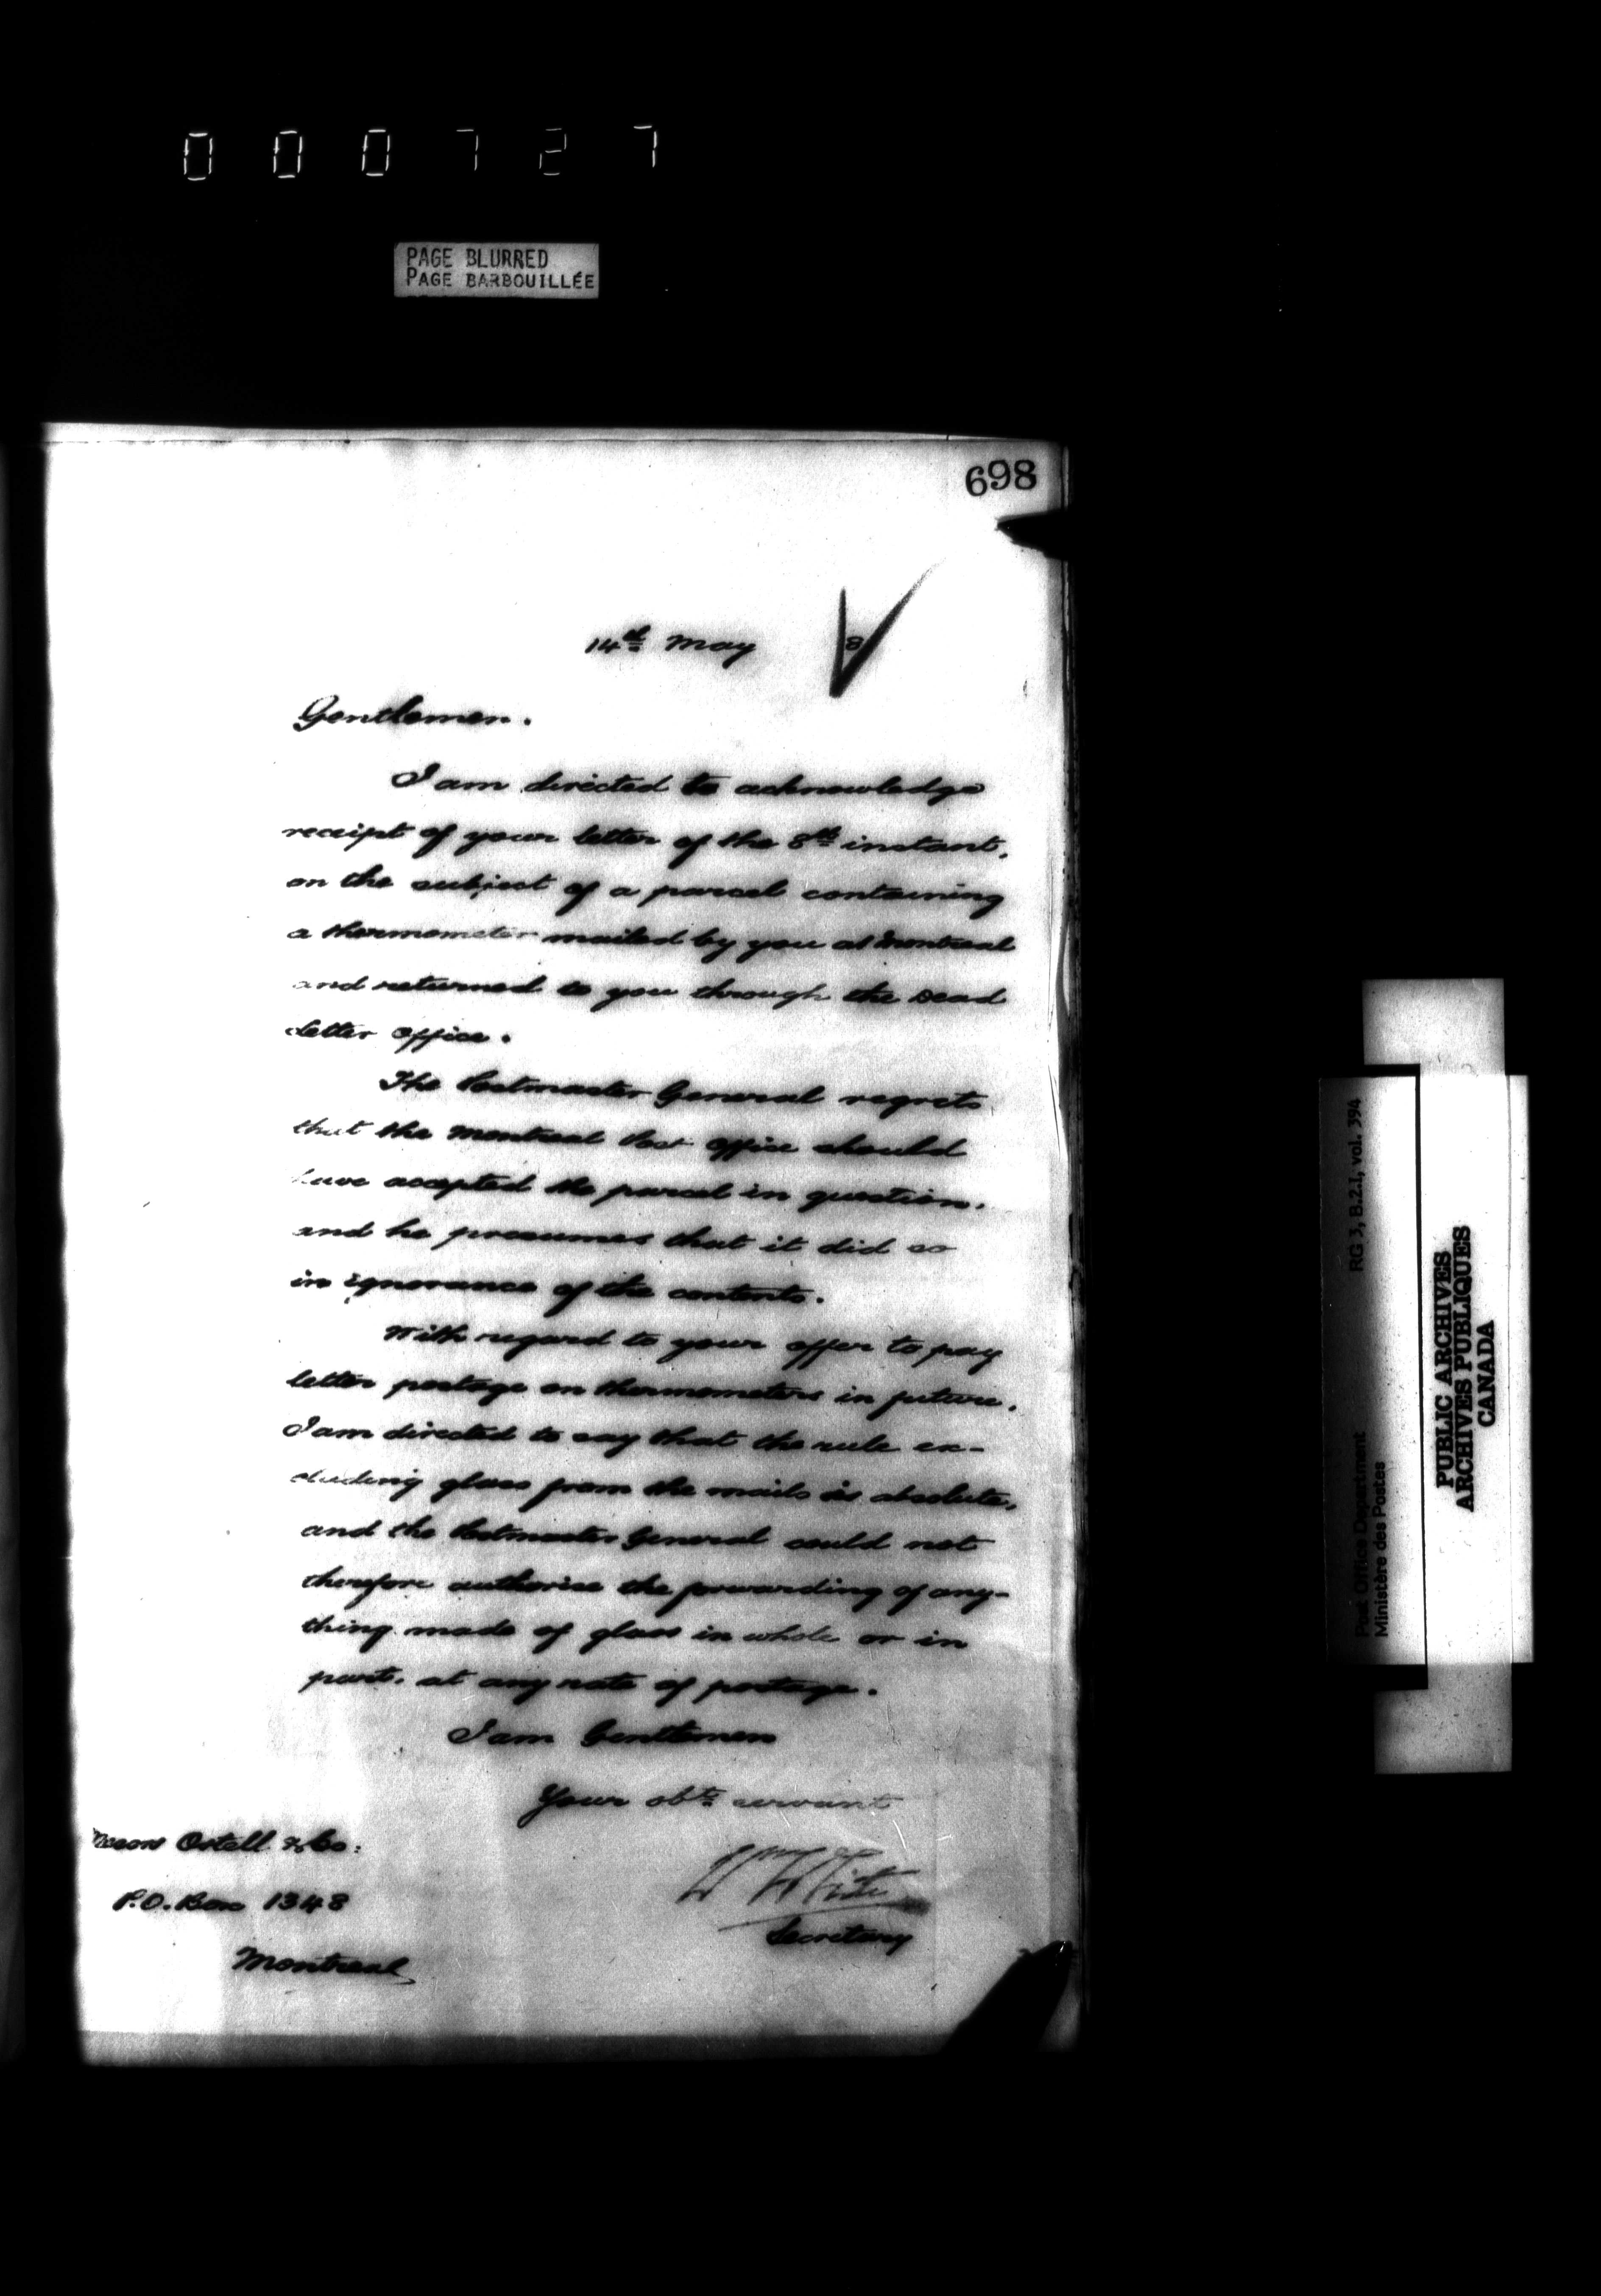 000727
PAGE BLURRED
PAGE BARBOUILLÉE
698
14th May 8
Gentlemen.
I am directed to acknowledge
receipt of your letter of the 8th instant,
on the subject of a parcel containing
a thermometer mailed by you at Montreal
and returned to you through the Dead
Letter Office.
The Postmaster General regrets
that the Montreal Post Office should
have accepted the parcel in question,
and he presumes that it did so
in ignorance of the contents.
With regard to your offer to pay
letter postage on thermometers in future,
I am directed to say that the rule ex-
cluding glass from the mails is absolute,
and the Postmaster General could not
therefore authorise the forwarding of any-
thing made of glass in whole or in
part, at any rate of postage.
I am Gentlemen
Your obt. servant
Secretary
Messrs Ostell & Co:
P.O. Box 1348
Montreal
Post Office Department RG 3, B.2.I, vol. 394
Ministère des Postes
PUBLIC ARCHIVES
ARCHIVES PUBLIQUES
CANADA